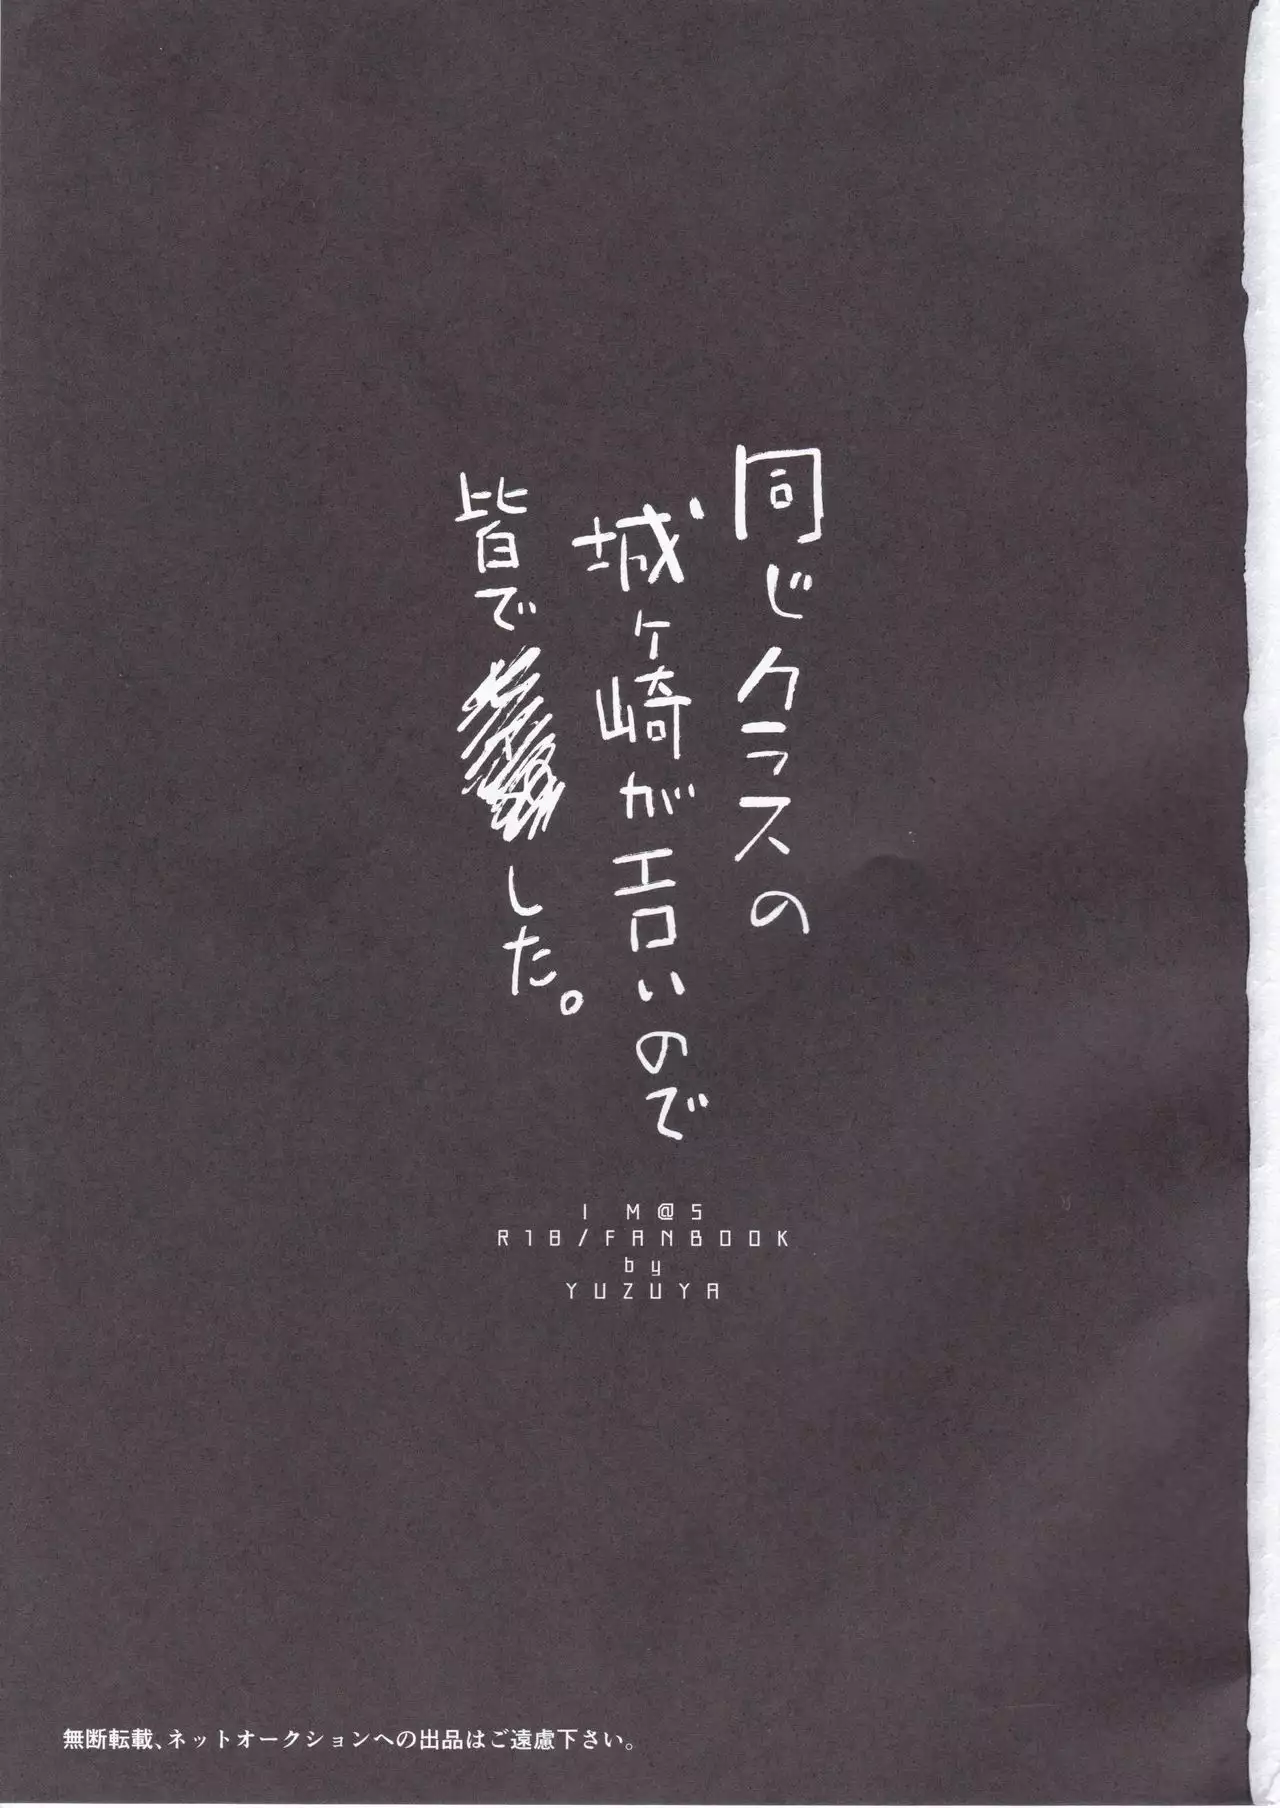 同じクラスの
城ヶ崎がエロいので
皆で した。
IM@S
R18/FANBOOK
by
YUZUYA
無断転載、ネットオークションへの出品はご遠慮下さい。